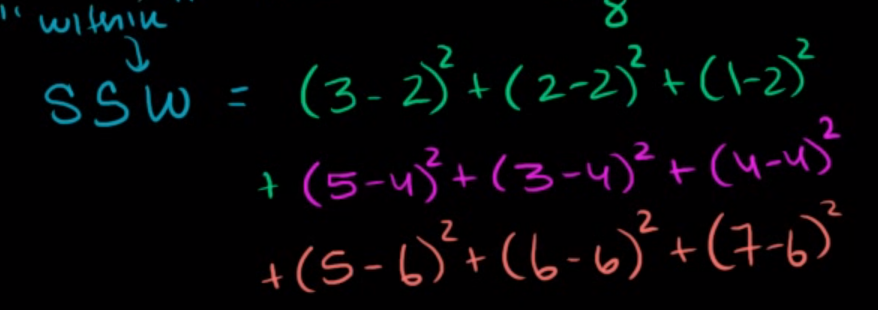 8
"within"
↓
SSW = (3-2)² + (2-2)² + (1-2)²
+ (5-4)² + (3-4)² + (4-4)²
+ (5-6)² + (6-6)² + (7-6)²